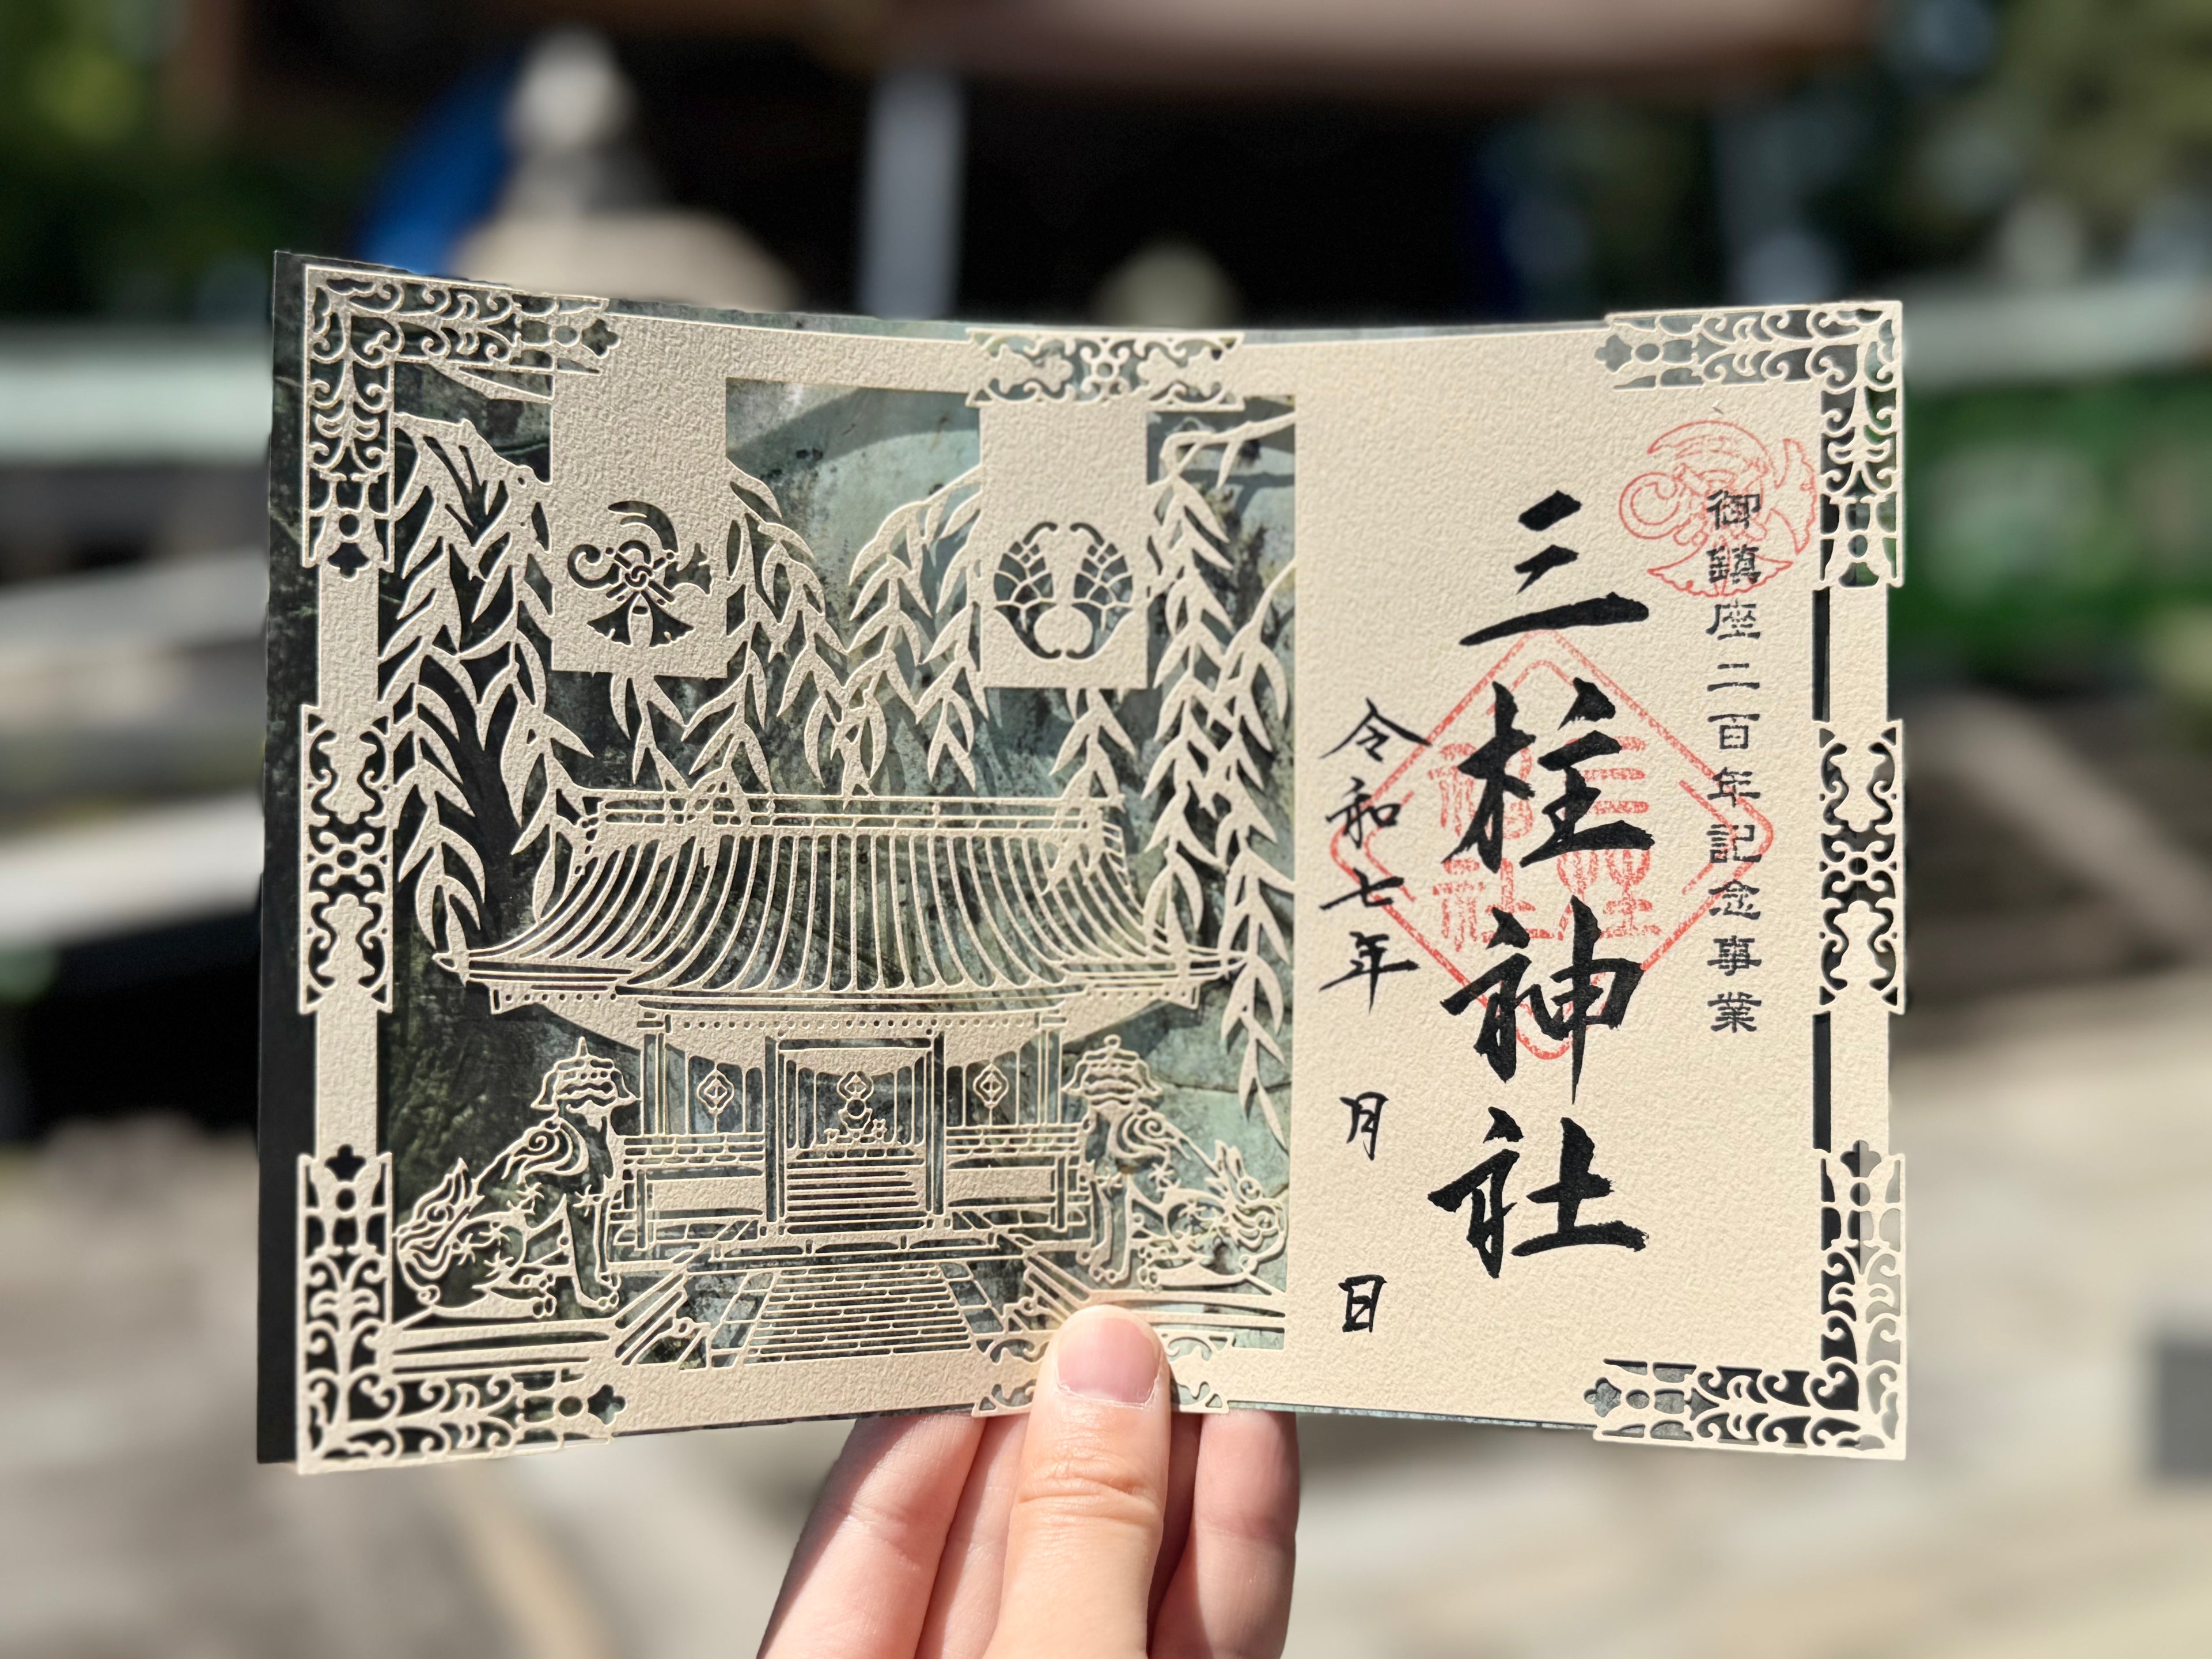 御鎮座二百年記念事業
三柱神社
令和七年 月 日
三柱
神社